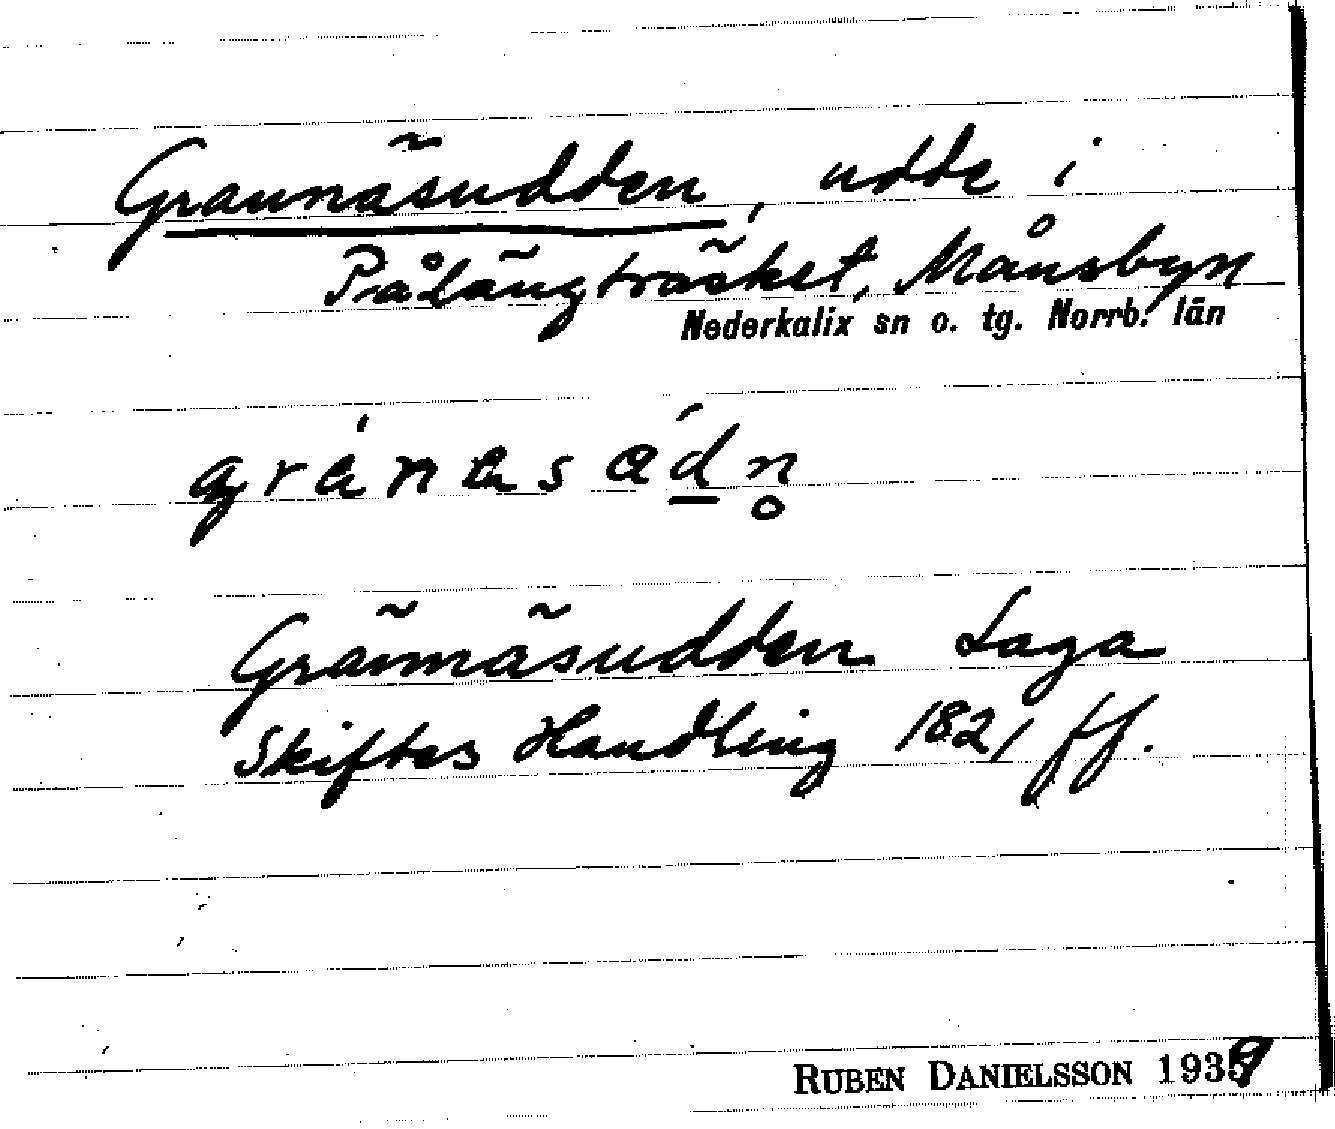 Grannäsudden, udde i
Pålängträsket, Månsbyn
Nederkalix sn o. tg. Norrb. län
gránasádn̥
Grännäsudden Laga
Skiftes Handling 1821 ff.
RUBEN DANIELSSON 1939